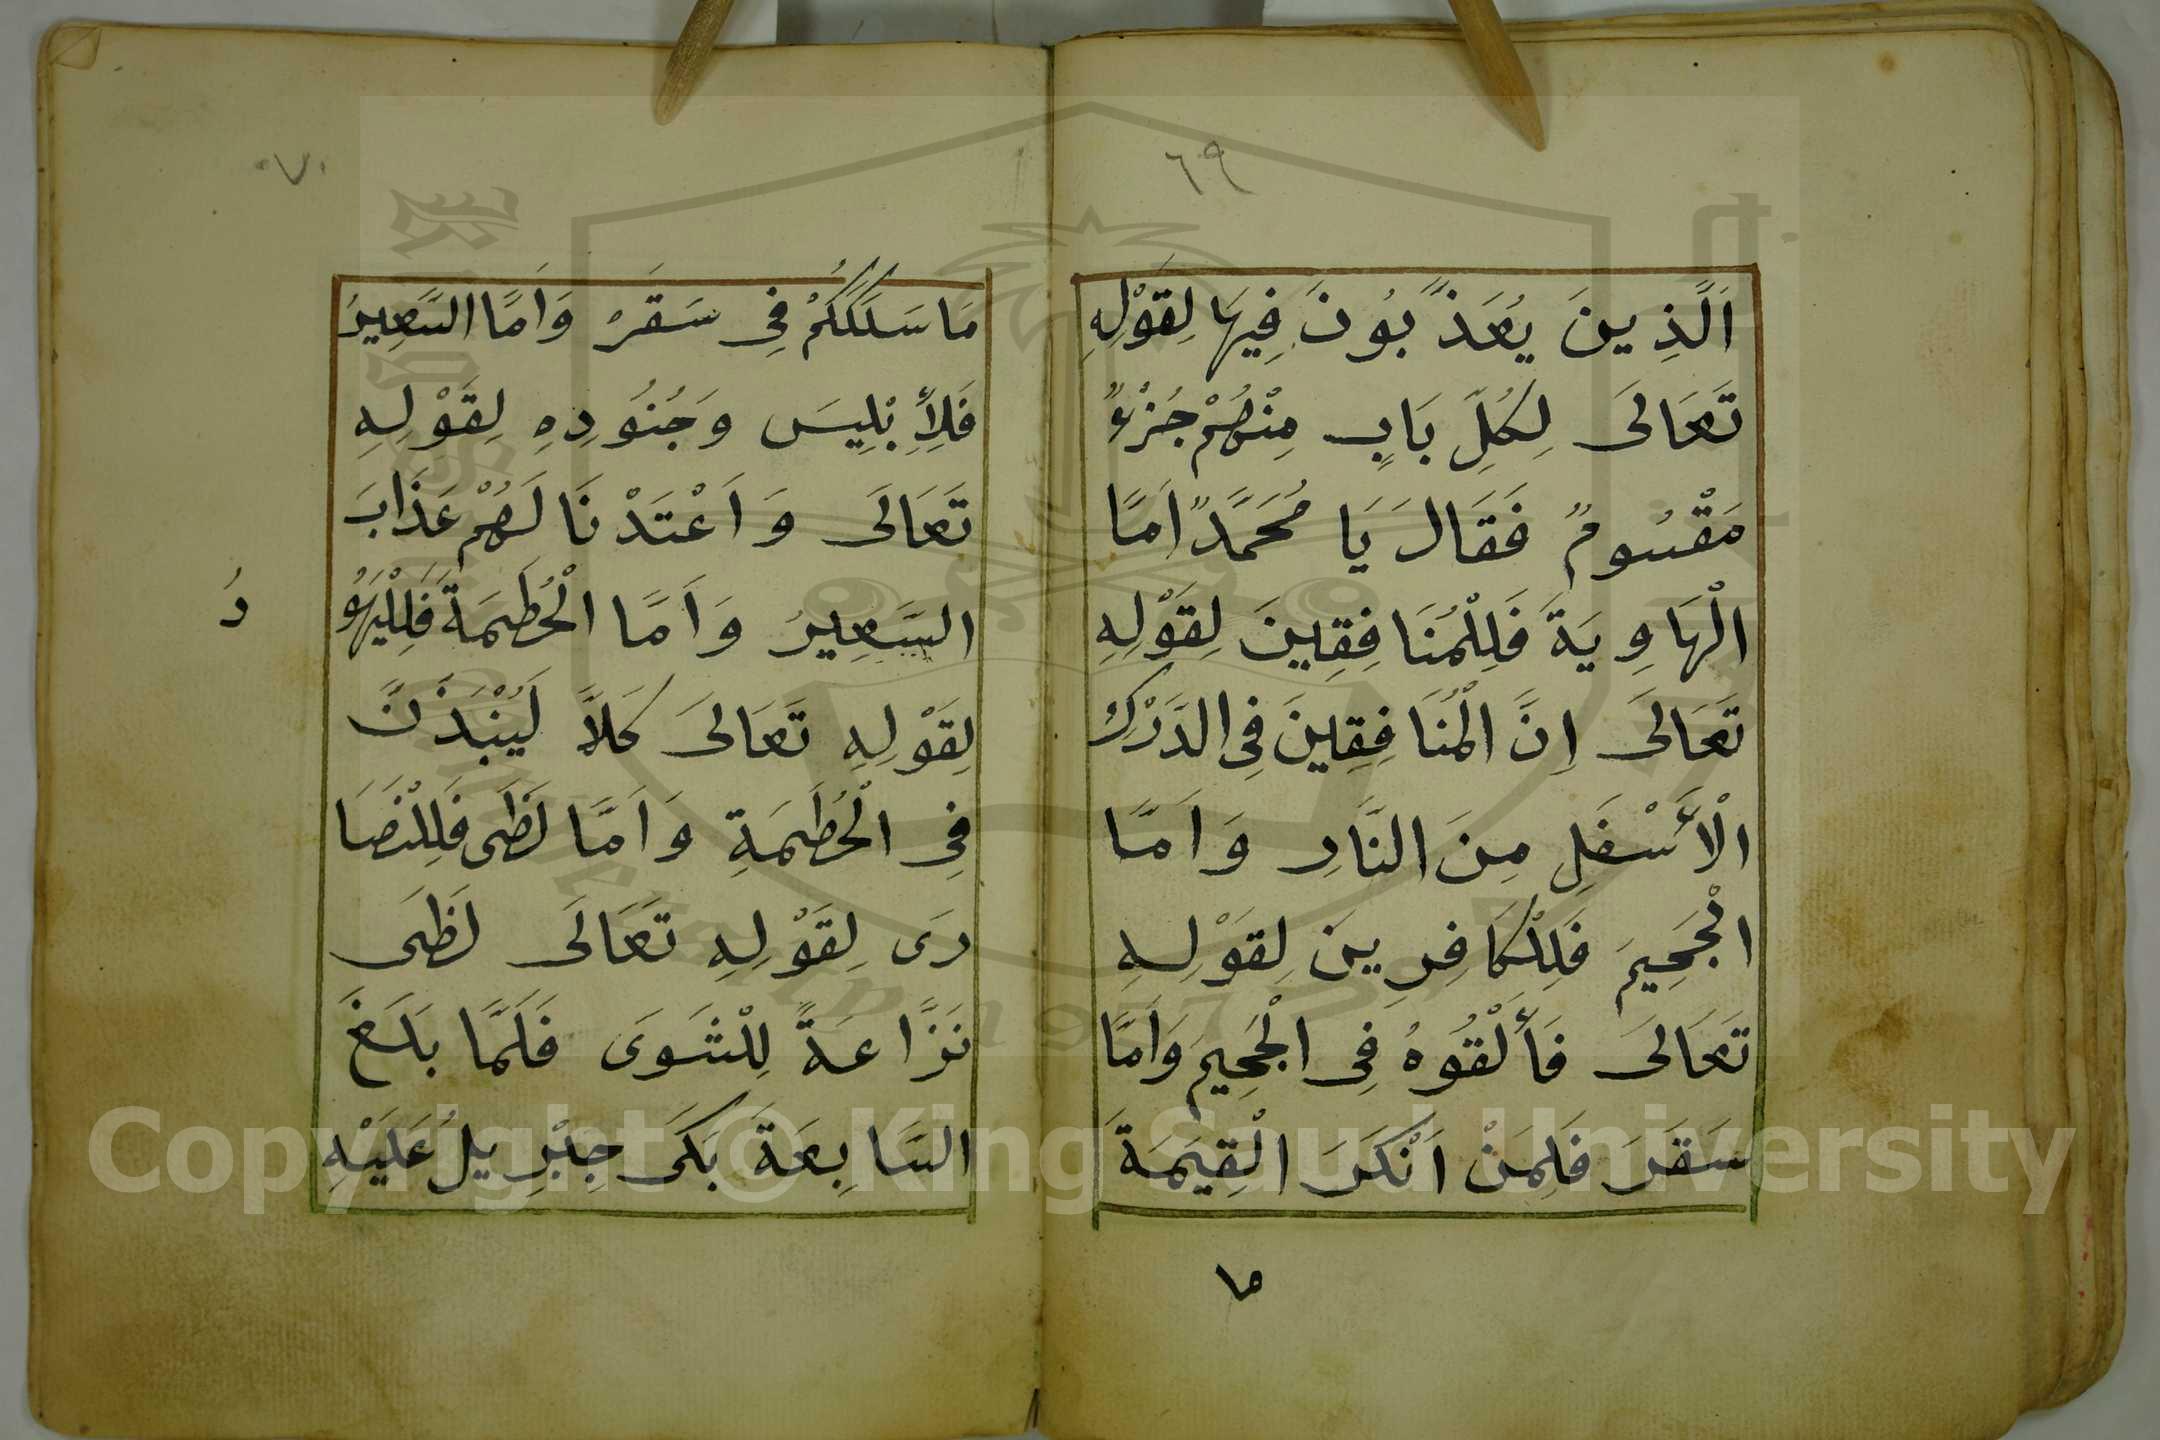 ٦٩
اَلَّذِينَ يُعَذَّبُونَ فِيهَا لِقَوْلِهِ
تَعَالَى لِكُلِّ بَابٍ مِنْهُمْ جُزْءٌ
مَقْسُومٌ فَقَالَ يَا مُحَمَّدٌ اَمَّا
الْهَاوِيَةَ فَلِلْمُنَافِقِينَ لِقَوْلِهِ
تَعَالَى اِنَّ الْمُنَافِقِينَ فِى الدَّرْكِ
الْأَسْفَلِ مِنَ النَّارِ وَاَمَّا
الْجَحِيمَ فَلِلْكَافِرِينَ لِقَوْلِهِ
تَعَالَى فَأَلْقُوهُ فِى الْجَحِيمِ وَاَمَّا
سَقَرَ فَلِمَنْ اَنْكَرَ الْقِيَمَةَ
ما
٧٠
مَا سَلَكَكُمْ فِى سَقَرْ وَاَمَّا السَّعِيرُ
فَلِأِبْلِيسَ وَجُنُودِهِ لِقَوْلِهِ
تَعَالَى وَاَعْتَدْنَا لَهُمْ عَذَابَ
السَّعِيرُ وَاَمَّا الْحُطَمَةَ فَلِلْيَهُو
دُ
لِقَوْلِهِ تَعَالَى كَلَّا لَيُنْبَذَنَّ
فِى الْحُطَمَةِ وَاَمَّا لَظَى فَلِلْنَصَا
رَى لِقَوْلِهِ تَعَالَى لَظَى
نَزَّاعَةً لِلْشَوَى فَلَمَّا بَلَغَ
السَّابِعَةَ بَكَى جِبْرِيلُ عَلَيْهِ
Copyright © King Saud University